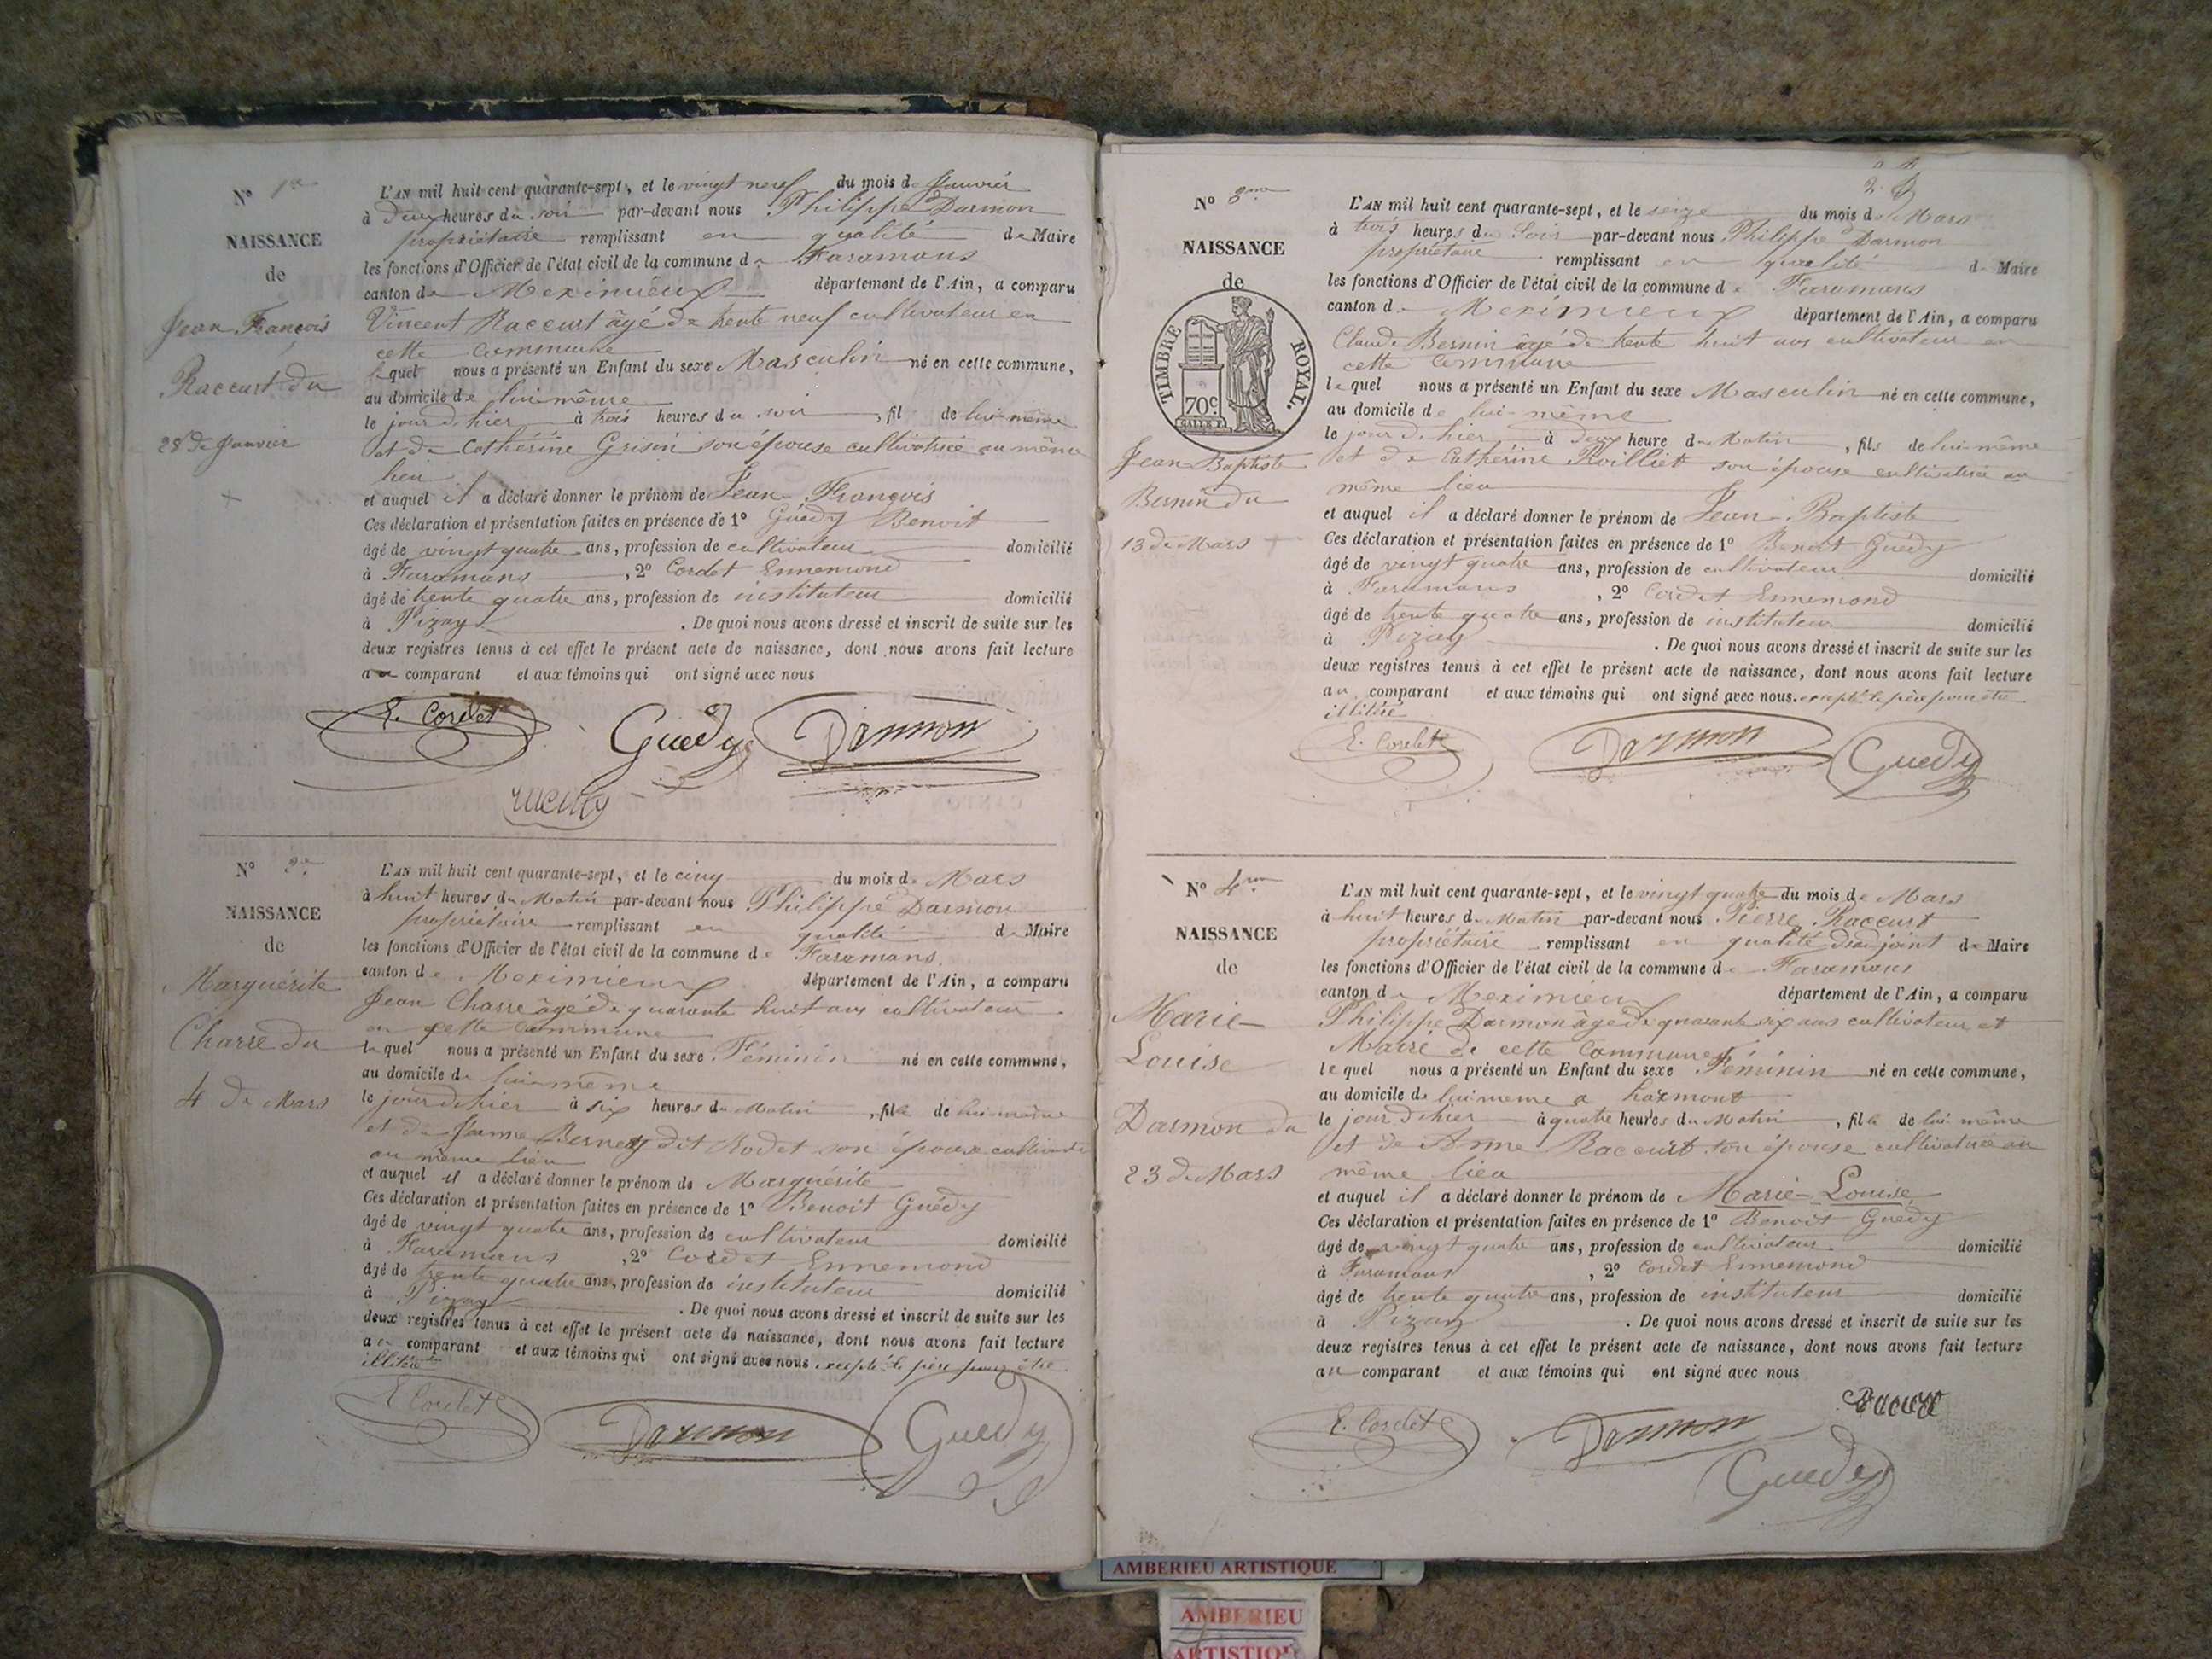 N° 1er
NAISSANCE
de
Jean François
Raccurt du
28 de Janvier
L'AN mil huit cent quarante-sept, et le vingt neuf du mois de Janvier
à deux heures du soir par-devant nous Philippe Darmon
propriétaire remplissant en qualité de Maire
les fonctions d'Officier de l'état civil de la commune de Faramans
canton de Meximieux département de l'Ain, a comparu
Vincent Raccurt âgé de trente neuf cultivateur en
cette commune
lequel nous a présenté un Enfant du sexe Masculin né en cette commune,
au domicile de lui-même
le jour d'hier à trois heures du soir, fil de lui-même
et de Cathérine Grisin son épouse cultivatrice au même
lieu
et auquel il a déclaré donner le prénom de Jean-François
Ces déclaration et présentation faites en présence de 1° Guédy Benoit
âgé de vingt quatre ans, profession de cultivateur domicilié
à Faramans, 2° Cordet Ennemond
âgé de trente quatre ans, profession de instituteur domicilié
à Pizay. De quoi nous avons dressé et inscrit de suite sur les
deux registres tenus à cet effet le présent acte de naissance, dont nous avons fait lecture
au comparant et aux témoins qui ont signé avec nous
E. Cordet Guedy Darmon
N° 2e
NAISSANCE
de
Marguérite
Charre du
4 de Mars
L'AN mil huit cent quarante-sept, et le cinq du mois de Mars
à huit heures du Matin par-devant nous Philippe Darmon
propriétaire remplissant en qualité de Maire
les fonctions d'Officier de l'état civil de la commune de Faramans.
canton de Meximieux département de l'Ain, a comparu
Jean Charre âgé de quarante huit ans cultivateur
en cette commune
lequel nous a présenté un Enfant du sexe Féminin né en cette commune,
au domicile de lui-même
le jour d'hier à six heures du Matin, fille de lui-même
et de Jeanne dit Rodet son épouse cultivatrice
au même lieu
et auquel il a déclaré donner le prénom de Marguérite
Ces déclaration et présentation faites en présence de 1° Benoit Guédy
âgé de vingt quatre ans, profession de cultivateur domicilié
à Faramans, 2° Cordet Ennemond
âgé de trente quatre ans, profession de instituteur domicilié
à Pizay. De quoi nous avons dressé et inscrit de suite sur les
deux registres tenus à cet effet le présent acte de naissance, dont nous avons fait lecture
au comparant et aux témoins qui ont signé avec nous excepté le père pour être
illitéré
E. Cordet Darmon Guedy
N° 3me
NAISSANCE
de
TIMBRE ROYAL.
70c.
Jean Baptiste
Bernin du
13 de Mars
L'AN mil huit cent quarante-sept, et le seize du mois de Mars
à trois heures du Soir par-devant nous Philippe Darmon
propriétaire remplissant en qualité de Maire
les fonctions d'Officier de l'état civil de la commune de Faramans
canton de Meximieux département de l'Ain, a comparu
Claude Bernin âgé de trente huit ans cultivateur en
cette commune
lequel nous a présenté un Enfant du sexe Masculin né en cette commune,
au domicile de lui-même
le jour d'hier à deux heure du Matin, fils de lui-même
et de Cathérine Roilliet son épouse cultivatrice au
même lieu
et auquel il a déclaré donner le prénom de Jean-Baptiste
Ces déclaration et présentation faites en présence de 1° Benoit Guédy
âgé de vingt quatre ans, profession de cultivateur domicilié
à Faramans, 2° Cordet Ennemond
âgé de trente quatre ans, profession de instituteur domicilié
à Pizay. De quoi nous avons dressé et inscrit de suite sur les
deux registres tenus à cet effet le présent acte de naissance, dont nous avons fait lecture
au comparant et aux témoins qui ont signé avec nous. excepté le père pour être
illitéré
E. Cordet Darmon Guedy
N° 4me
NAISSANCE
de
Marie-
Louise
Darmon du
23 de Mars
L'AN mil huit cent quarante-sept, et le vingt quatre du mois de Mars
à huit heures du Matin par-devant nous Pierre Raccurt
propriétaire remplissant en qualité d'adjoint de Maire
les fonctions d'Officier de l'état civil de la commune de Faramans
canton de Meximieux département de l'Ain, a comparu
Philippe Darmon âgé de quarante six ans cultivateur et
Maire de cette Commune
lequel nous a présenté un Enfant du sexe Féminin né en cette commune,
au domicile de lui même a
le jour d'hier à quatre heures du Matin, fille de lui même
et de Anne Raccurt son épouse cultivatrice au
même lieu
et auquel il a déclaré donner le prénom de Marie-Louise
Ces déclaration et présentation faites en présence de 1° Benoit Guédy
âgé de vingt quatre ans, profession de cultivateur domicilié
à Faramans, 2° Cordet Ennemond
âgé de trente quatre ans, profession de instituteur domicilié
à Pizay. De quoi nous avons dressé et inscrit de suite sur les
deux registres tenus à cet effet le présent acte de naissance, dont nous avons fait lecture
au comparant et aux témoins qui ont signé avec nous
E. Cordet Darmon
Guedy
AMBERIEU ARTISTIQUE
AMBERIEU